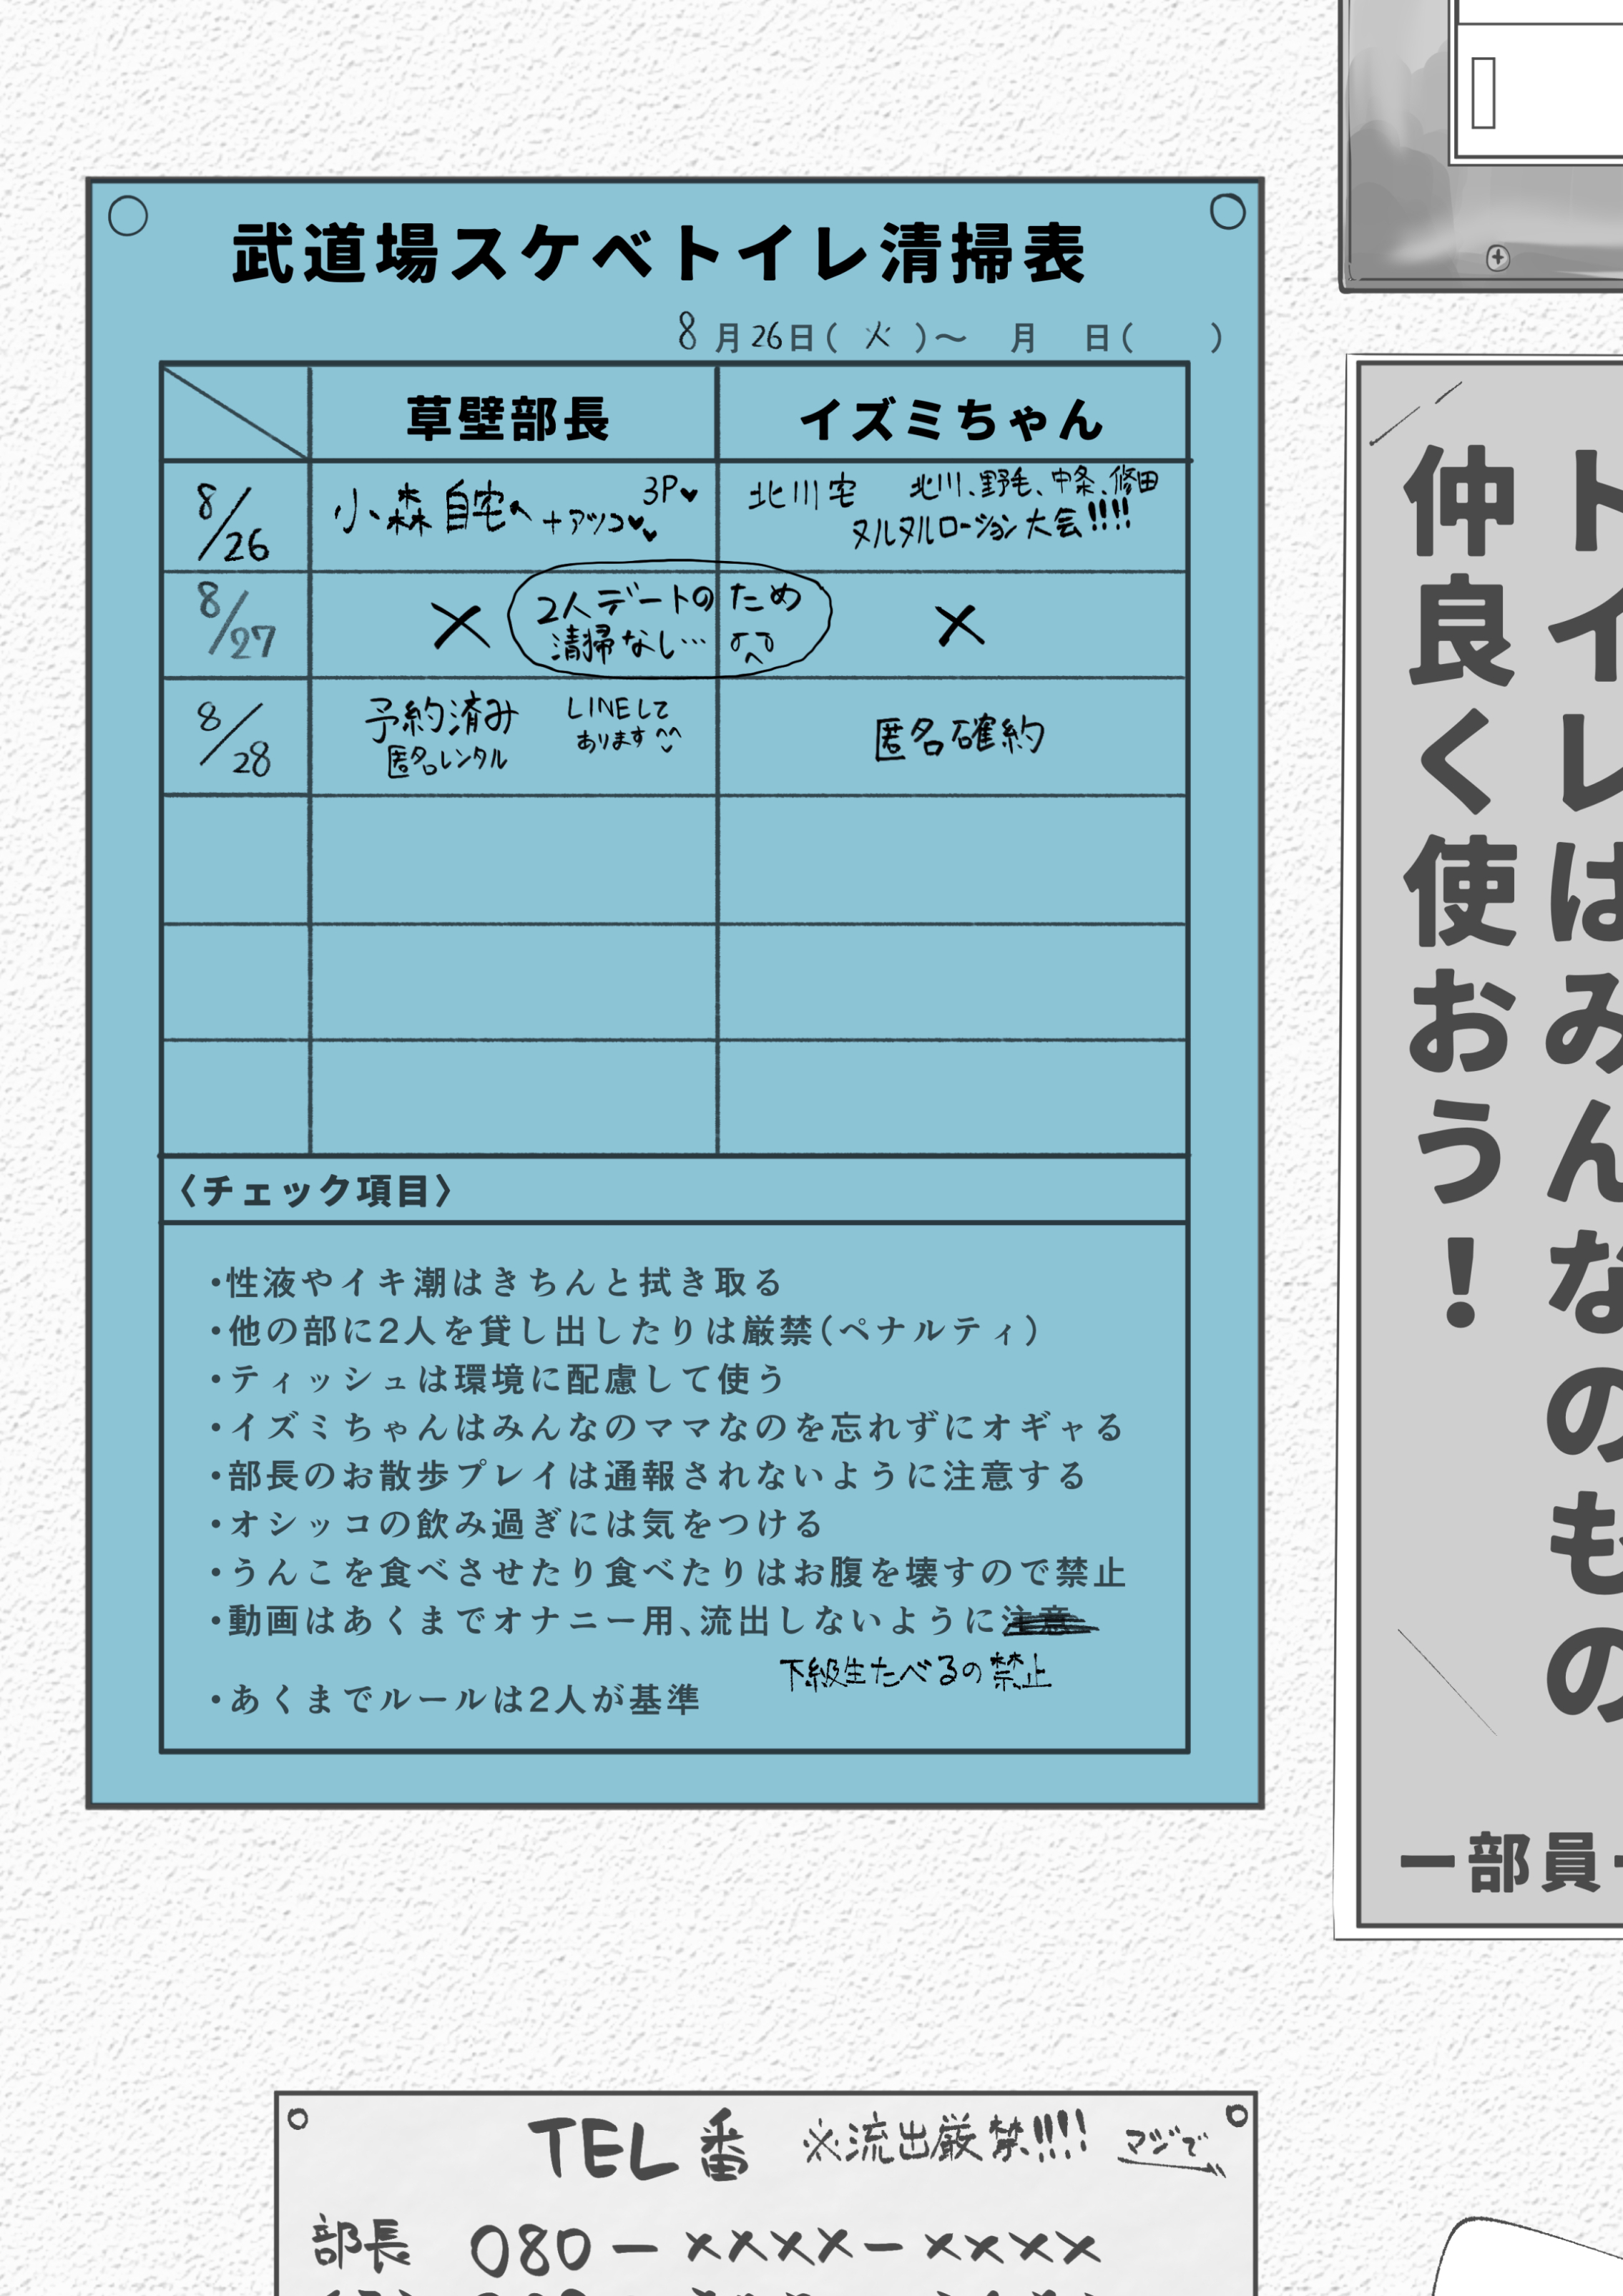 武道場スケベトイレ清掃表
8月26日(火)～ 月 日( )
草壁部長 イズミちゃん
8/26 小森自宅へ +アツコ 3P 北川宅 北川、野毛、中条、修田
ヌルヌルローション大会!!!!
8/27 × 2人デートのため ×
清掃なし…
8/28 予約済み LINEして 匿名確約
匿名レンタル あります^^
〈チェック項目〉
・性液やイキ潮はきちんと拭き取る
・他の部に2人を貸し出したりは厳禁(ペナルティ)
・ティッシュは環境に配慮して使う
・イズミちゃんはみんなのママなのを忘れずにオギャる
・部長のお散歩プレイは通報されないように注意する
・オシッコの飲み過ぎには気をつける
・うんこを食べさせたり食べたりはお腹を壊すので禁止
・動画はあくまでオナニー用、流出しないように注意
下級生たべるの禁止
・あくまでルールは2人が基準
トイレはみんなのもの
仲良く使おう!
ー部員
TEL番 ※流出厳禁!!!! マジで
部長 080-××××-××××